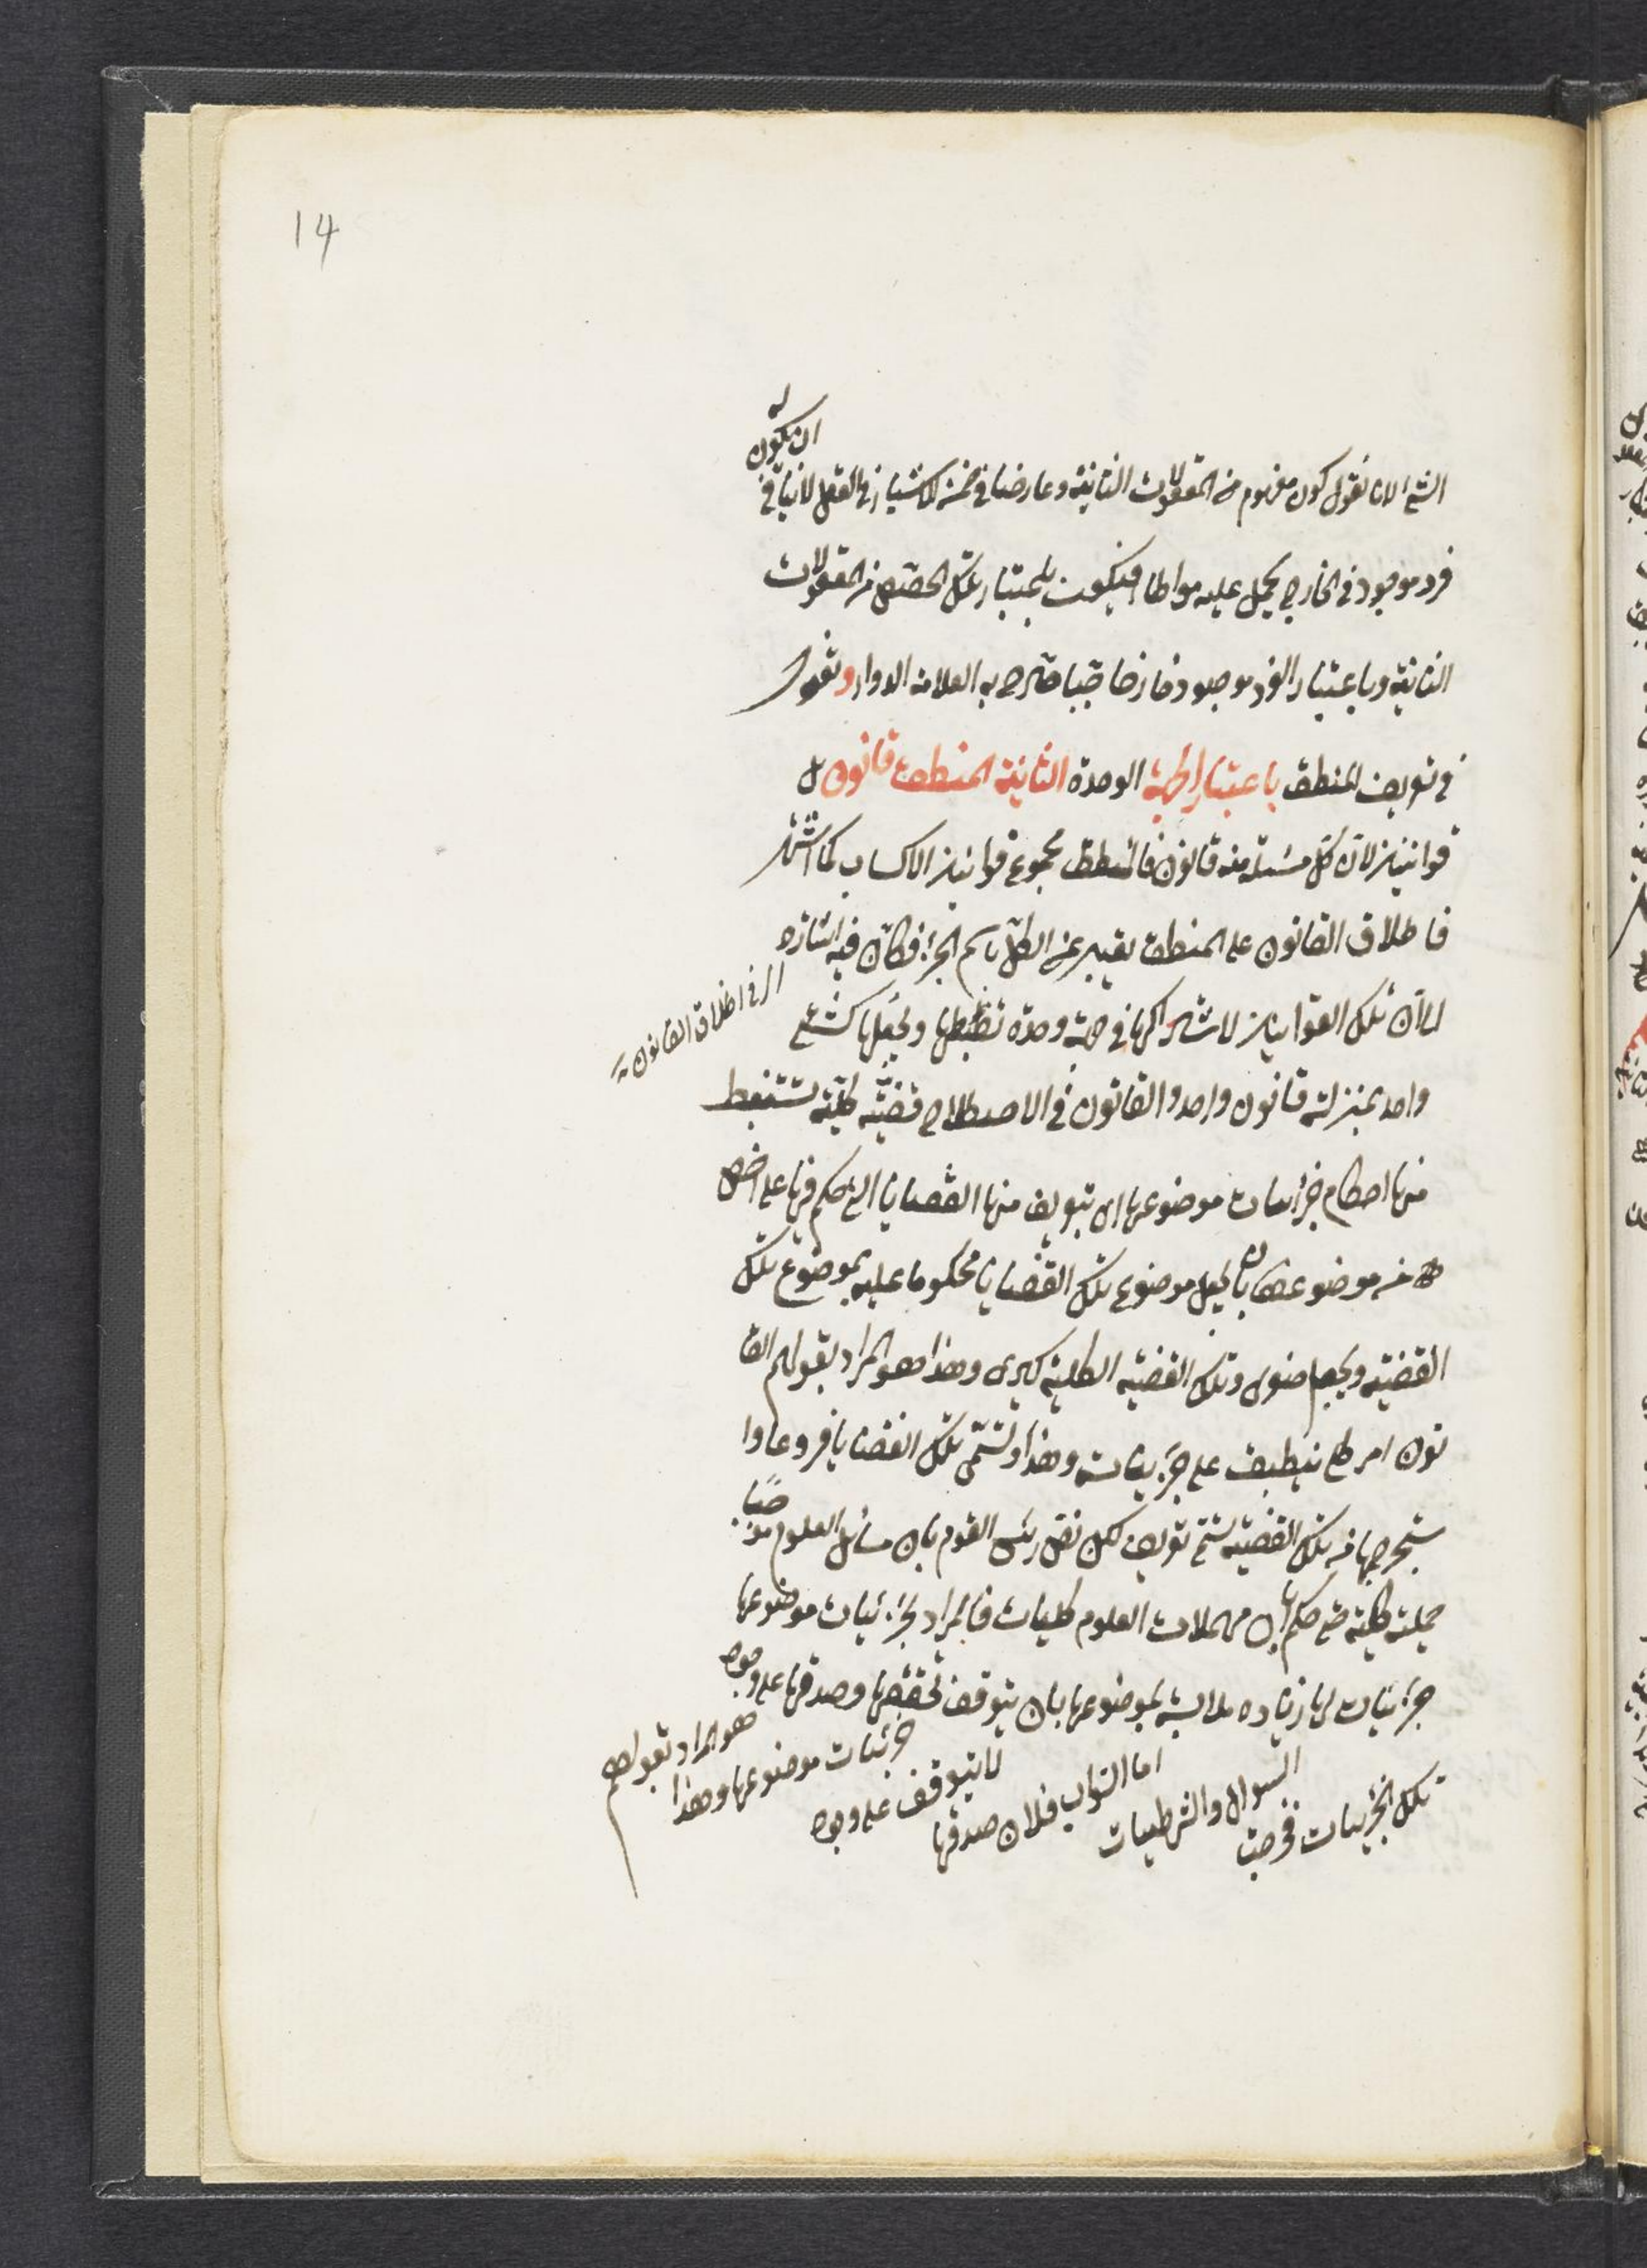 14
ان يكون له
الشيء لانا نقول كون مفهوم من المعقولات الثانية وعارضا في للاشياء في العقل لا ينافي
فرد موجود في الخارج يحمل عليه مواطا فيكون باعتبار تلك الحصص من المعقولات
الثانية وباعتبار الفرد موجود خارجا صرح به العلامة الدوا ونقول
في تعريف المنطق باعتبار الجهة الوحدة الثانية المنطق قانون بل
قوانين لان كل مسئلة منه قانون فالمنطق مجموع قوانين الاكتساب كما اشتهر
فاطلاق القانون على المنطق تعبير عن الكل باسم الجزء فكان فيه اشارة
اي في اطلاق القانون
الى ان تلك القوانين لاشتراكها في جهة وحدة تضبطها وتجعلها كشيء
واحد بمنزلة قانون واحد والقانون في الاصطلاح قضية كلية تستنبط
منها احكام جزئيات موضوعها اي يتعرف منها القضايا التي حكم فيها على اخص
من موضوعها بان يجعل موضوع تلك القضايا محكوما عليه بموضوع تلك
القضية ويجعل صغرى وتلك القضية الكلية كبرى وهذا هو المراد بقولهم القا
نون امر كلي ينطبق على جزئياته وهذا وتسمى تلك القضايا فروعا وا
ستخراجها من تلك القضية تسمى تعريف لكن نقل رئيس القوم بان مسائل العلوم
حملية كلية حتى حكم بان مهملات العلوم كليات فالمراد بجزئيات موضوعها
جزئيات لها زيادة ملابسة بموضوعها بان يتوقف تحققها وصدقها على وجود
تلك الجزئيات فخرجت السوال والشرطيات اما السوالب فلان صدقها لا يتوقف على وجود جزئيات موضوعها وهذا هو المراد بقولهم